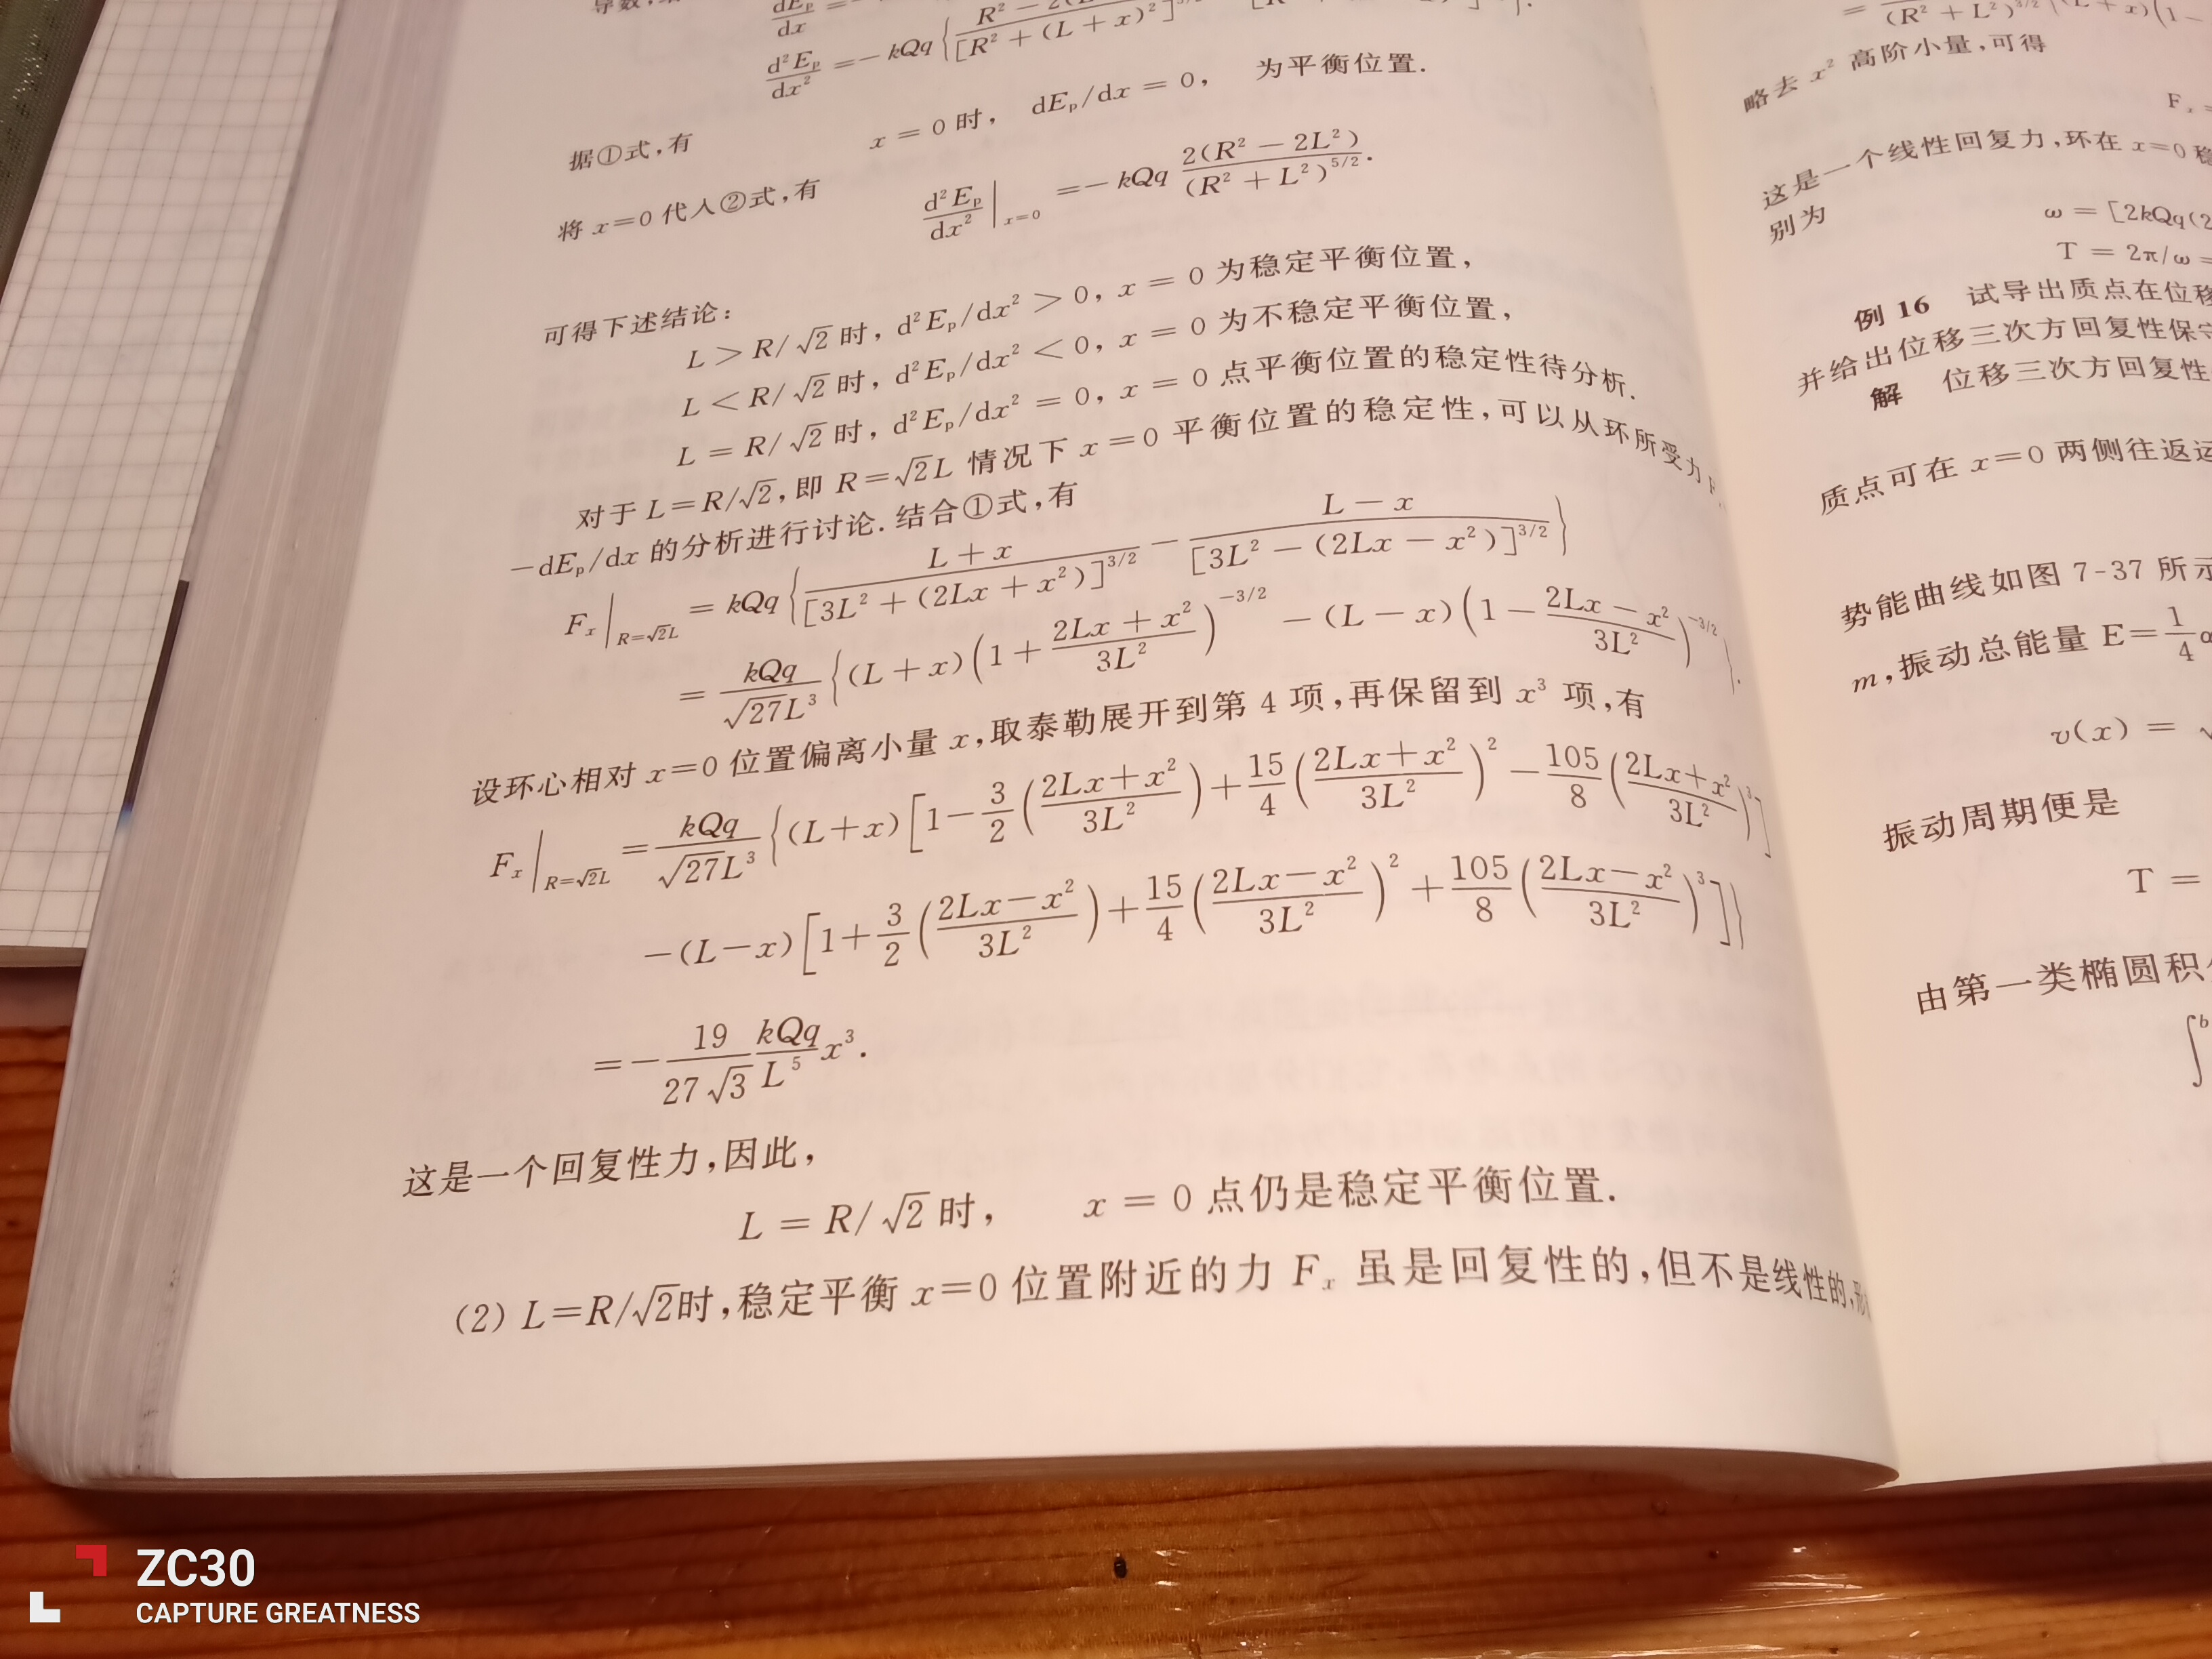 dE_p/dx = -
d²E_p/dx² = -kQq{R² - 2(L / [R² + (L + x)²]
据①式,有
x = 0 时, dE_p/dx = 0, 为平衡位置.
将 x=0 代入②式,有
d²E_p/dx² |_{x=0} = -kQq 2(R² - 2L²)/(R² + L²)^{5/2}.
可得下述结论:
L > R/√2 时, d²E_p/dx² > 0, x = 0 为稳定平衡位置,
L < R/√2 时, d²E_p/dx² < 0, x = 0 为不稳定平衡位置,
L = R/√2 时, d²E_p/dx² = 0, x = 0 点平衡位置的稳定性待分析.
对于 L=R/√2,即 R=√2L 情况下 x=0 平衡位置的稳定性,可以从环所受力
-dE_p/dx 的分析进行讨论. 结合①式,有
F_x |_{R=√2L} = kQq{(L + x)/[3L² + (2Lx + x²)]^{3/2} - (L - x)/[3L² - (2Lx - x²)]^{3/2}}
= kQq/(√27L³) {(L + x)(1 + (2Lx + x²)/(3L²))^{-3/2} - (L - x)(1 - (2Lx - x²)/(3L²))^{-3/2}}.
设环心相对 x=0 位置偏离小量 x,取泰勒展开到第 4 项,再保留到 x³ 项,有
F_x |_{R=√2L} = kQq/(√27L³) {(L+x)[1 - 3/2((2Lx+x²)/(3L²)) + 15/4((2Lx+x²)/(3L²))² - 105/8((2Lx+x²)/(3L²))³]
-(L-x)[1 + 3/2((2Lx-x²)/(3L²)) + 15/4((2Lx-x²)/(3L²))² + 105/8((2Lx-x²)/(3L²))³]}
= -19/(27√3) kQq/L⁵ x³.
这是一个回复性力,因此,
L = R/√2 时, x = 0 点仍是稳定平衡位置.
(2) L=R/√2时,稳定平衡 x=0 位置附近的力 F_x 虽是回复性的,但不是线性的,
略去 x² 高阶小量,可得
这是一个线性回复力,环在 x=0 稳
别为
ω = [2kQq(2
T = 2π/ω =
例 16 试导出质点在位移
并给出位移三次方回复性保守
解 位移三次方回复性
质点可在 x=0 两侧往返运
势能曲线如图 7-37 所示
m,振动总能量 E=1/4 α
v(x) = √
振动周期便是
T =
由第一类椭圆积
ZC30
CAPTURE GREATNESS